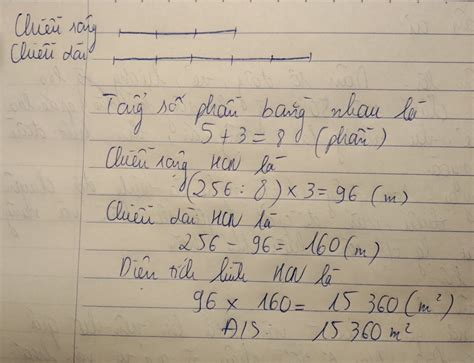 Chiều rộng
Chiều dài
Tổng số phần bằng nhau là
5 + 3 = 8 (phần)
Chiều rộng HCN là
(256 : 8) × 3 = 96 (m)
Chiều dài HCN là
256 - 96 = 160 (m)
Diện tích hình HCN là
96 × 160 = 15 360 (m²)
Đ/S: 15 360 m²